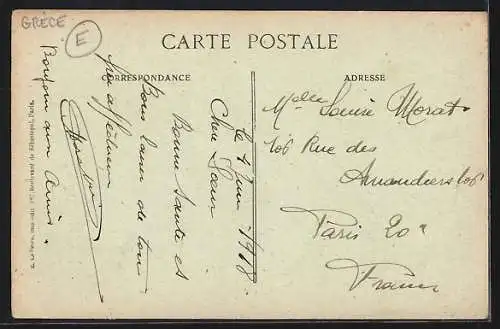 GRÈCE
E
CARTE POSTALE
CORRESPONDANCE
ADRESSE
le 4 Juin 1918
Chere Sœur
Bonne Santé et
Bons baiser de ton
frère affectueux
Bonjour aux Amis.
Mlle Louise Morat
106 Rue des
Amandiers 106
Paris 20e
France